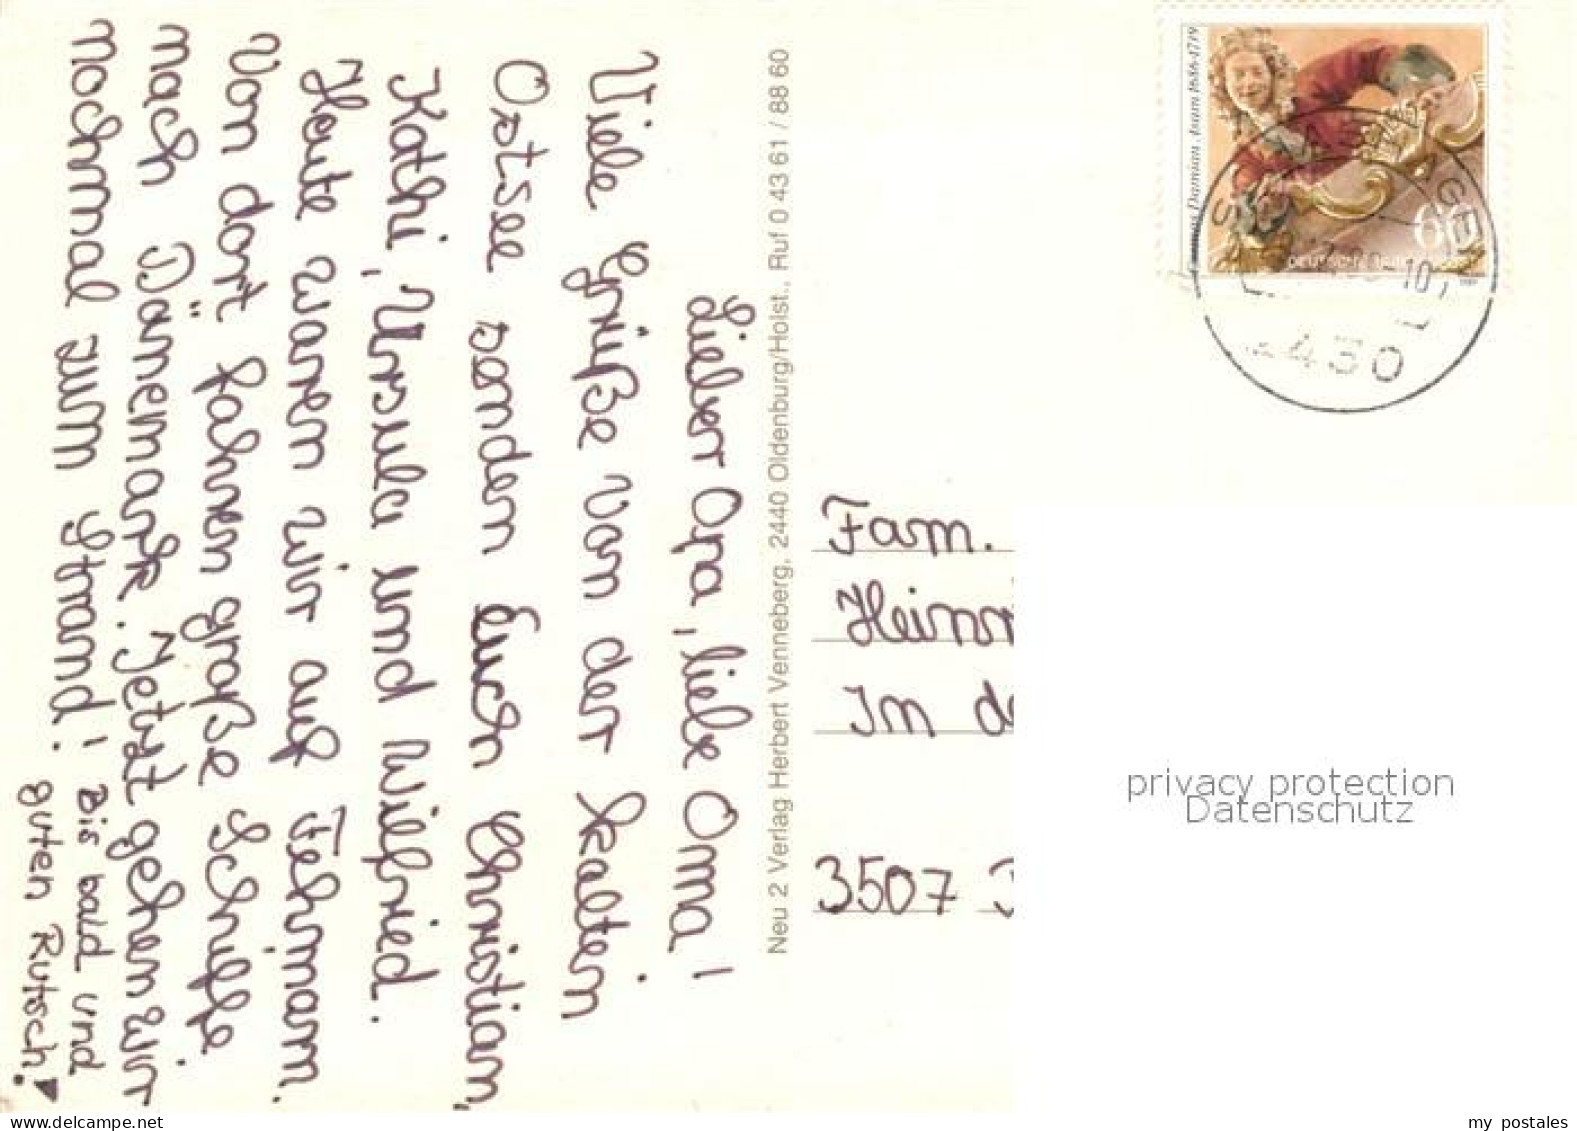 Lieber Opa, liebe Oma!
Viele Grüße von der kalten
Ostsee senden Euch Christian,
Kathi, Ursula und Wilfried.
Heute waren wir auf Fehmarn.
Von dort fahren große Schiffe
nach Dänemark. Jetzt gehen wir
nochmal zum Strand! Bis bald und
guten Rutsch!
Neu 2 Verlag Herbert Venneberg, 2440 Oldenburg/Holst., Ruf 0 43 61 / 88 60
Damian Asam 1686-1739
60
DEUTSCHE
-10
2430
Fam.
Heinr
In d
3507
privacy protection
Datenschutz
www.delcampe.net
my_postales